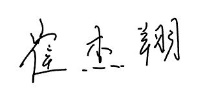 崔杰翔